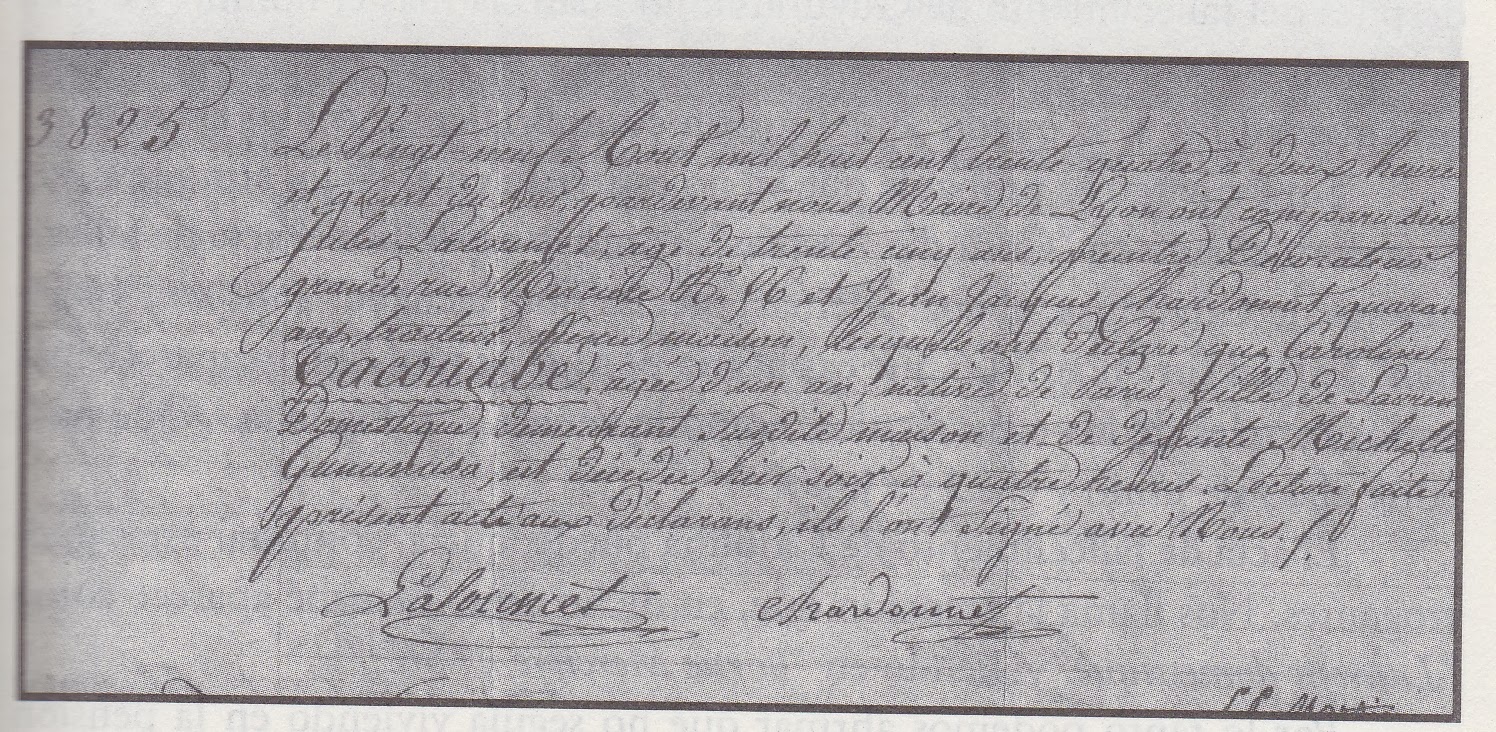 3825
Le Vingt-neuf Août mil huit cent trente quatre, à deux heure
et quart du soir, pardevant nous Maire de Lyon ont comparu sieu
Jules Laloumet, âgé de trente-cinq ans, peintre Décorateur,
grande rue Mercière N.º 56 et Jean Jacques Chardonnet, quaran
ans, traiteur, même maison, lesquels ont déclaré que Caroline
Tacouabé, âgée d'un an, native de Paris, fille de Lauren
Domestique, demeurant susdite maison et de défunte Michelle
Gununusa, est décédée hier soir à quatre heures. Lecture faite
présent acte aux déclarans, ils l'ont signé avec Nous.
Laloumet chardonnet